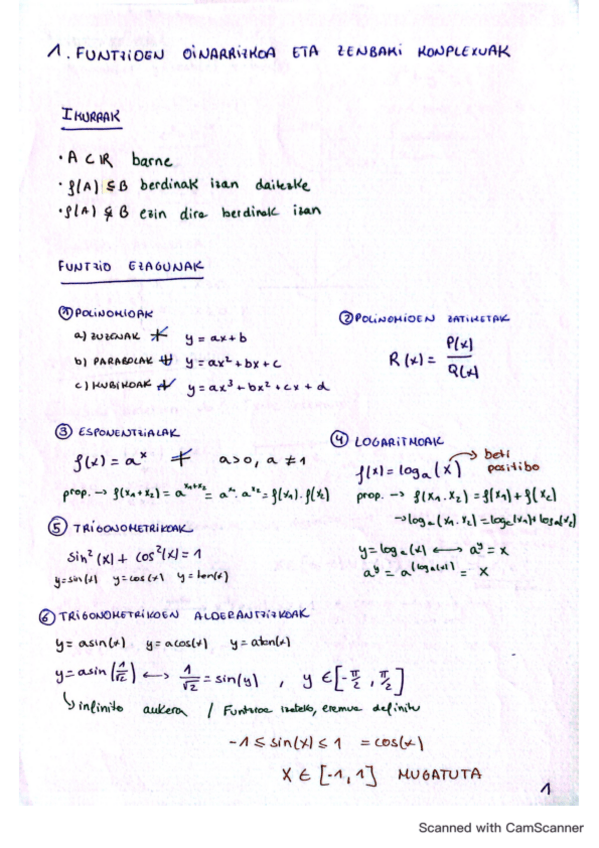 1. FUNTZIOEN OINARRIZKOA ETA ZENBAKI KONPLEXUAK
IKURRAK
· A ⊂ ℝ barne
· f(A) ⊆ B berdinak izan daitezke
· f(A) ⊊ B ezin dira berdinak izan
FUNTZIO EZAGUNAK
① POLINOMIOAK
a) ZUZENAK y = ax + b
b) PARABOLAK y = ax² + bx + c
c) KUBIKOAK y = ax³ + bx² + cx + d
② POLINOMIOEN ZATIKETAK
R(x) = P(x)/Q(x)
③ ESPONENTZIALAK
f(x) = aˣ a>0, a ≠ 1
prop. → f(x₁+x₂) = a^(x₁+x₂) = a^x₁ · a^x₂ = f(x₁) · f(x₂)
④ LOGARITMOAK
f(x) = logₐ(x) → beti positibo
prop. → f(x₁ · x₂) = f(x₁) + f(x₂)
→ logₐ(x₁ · x₂) = logₐ(x₁) + logₐ(x₂)
y = logₐ(x) ⟷ aʸ = x
aʸ = a^(logₐ(x)) = x
⑤ TRIGONOMETRIKOAK
sin²(x) + cos²(x) = 1
y = sin(x) y = cos(x) y = tan(x)
⑥ TRIGONOMETRIKOEN ALDERANTZIZKOAK
y = asin(x) y = acos(x) y = atan(x)
y = asin(1/√2) ⟷ 1/√2 = sin(y) , y ∈ [-π/2, π/2]
↳ infinito aukera / Funtzioa izateko, eremua definitu
-1 ≤ sin(x) ≤ 1 = cos(x)
X ∈ [-1, 1] MUGATUTA
1
Scanned with CamScanner